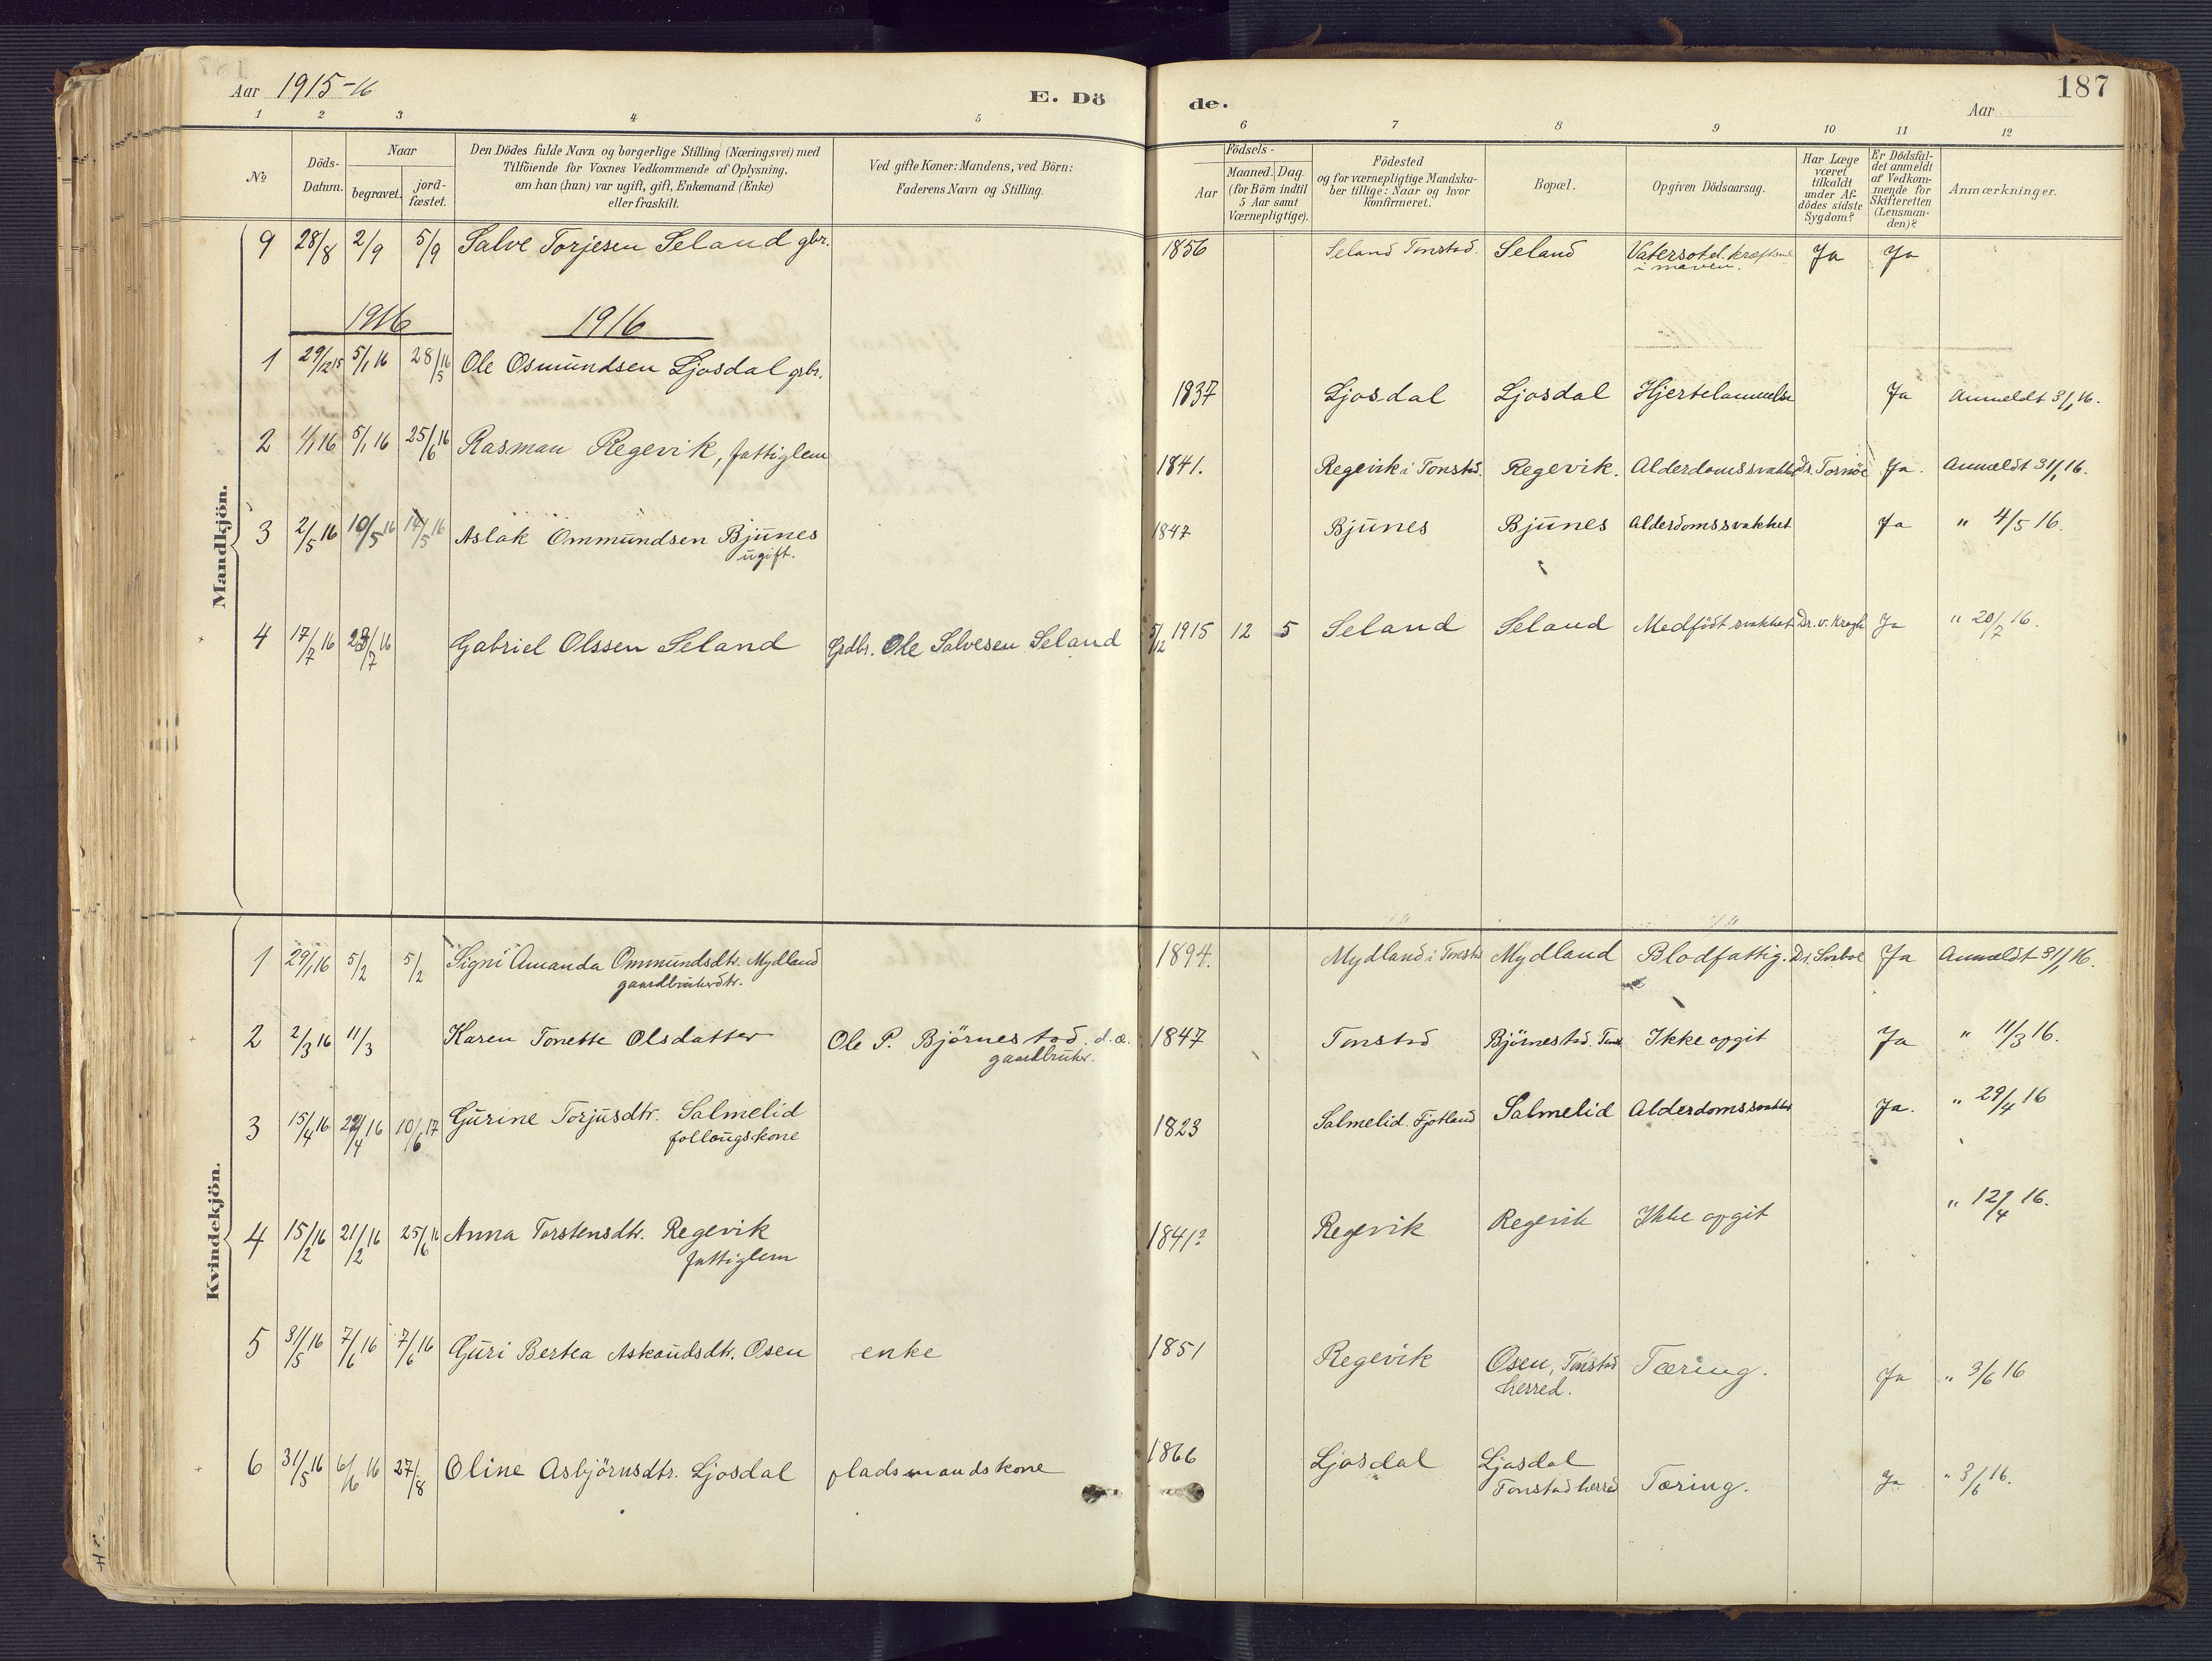 Aar 1915-16
E. Dö
de.
187
Aar
1 2 3 4 5 6 7 8 9 10 11 12
No
Döds-Datum.
Naar
begravet.
jord-fæstet.
Den Dödes fulde Navn og borgerlige Stilling (Næringsvei) med
Tilföiende for Voxnes Vedkommende af Oplysning,
om han (hun) var ugift, gift, Enkemand (Enke)
eller fraskilt.
Ved gifte Koner: Mandens, ved Börn:
Faderens Navn og Stilling.
Födsels-
Aar
Maaned. Dag.
(for Börn indtil
5 Aar samt
Værnepligtige).
Födested
og for værnepligtige Mandska-
ber tillige: Naar og hvor
konfirmeret.
Bopæl.
Opgiven Dödsaarsag.
Har Læge
været
tilkaldt
under Af-
dödes sidste
Sygdom?
Er Dödsfal-
det anmeldt
af Vedkom-
mende for
Skifteretten
(Lensman-
den)?
Anmærkninger.
Mandkjön.
9 28/8 2/9 5/9 Salve Torjesen Seland gbr. 1856 Seland Tonstad. Seland Vatersot el. Ja Ja
i maven.
1916 1916
1 29/12 15 5/1 16 28/5 16 Ole Osmundsen Ljosdal grbr. 1837 Ljosdal Ljosdal Hjertelammelse Ja Anmeldt 3/1 16.
2 1/1 16 5/1 16 25/6 16 Rasman Regevik, fattiglem 1841. Regevik i Tonstd. Regevik. Alderdomssvakhet Dr. Tornöe Ja. Anmeldt 31/1 16.
3 2/5 16 10/5 16 14/5 16 Aslak Ommundsen Bjunes 1847 Bjunes Bjunes Alderdomssvakhet Ja " 4/5 16.
ugift.
4 17/7 16 23/7 16 Gabriel Olssen Seland Grdbr. Ole Salvesen Seland 5/12 1915 12 5 Seland Seland Medfödt svakhet Dr. v. Krogh Ja " 20/7 16.
Kvindekjön.
1 29/1 16 5/2 5/2 Signi Amanda Ommundsdtr. Mydland 1894. Mydland i Tonstd Mydland Blodfattig. Dr. Ja Anmeldt 31/1 16.
gaardbrukerdtr.
2 2/3 16 11/3 Karen Tonette Olsdatter Ole P. Björnestad. d.æ. 1847 Tonstad Björnestad. Tonst Ikke opgit Ja " 11/3 16.
gaardbruker.
3 15/4 16 29/4 16 10/6 17 Gurine Torjusdtr. Salmelid 1823 Salmelid. Fjotland Salmelid Alderdomssvakhet Ja. " 29/4 16
follougskone
4 15/2 16 21/2 16 25/6 16 Anna Torstensdtr. Regevik 1841? Regevik Regevik Ikke opgit " 12/4 16.
fattiglem
5 31/5 16 7/6 16 7/6 16 Guri Bertea Askoudsdtr. Osen enke 1851 Regevik Osen, Tonstad Tæring. Ja " 3/6 16
herred.
6 31/5 16 6/6 16 27/8 Oline Asbjörnsdtr. Ljosdal pladsmandskone 1866 Ljosdal Ljosdal Tæring. Ja " 3/6 16.
Tonstad herred